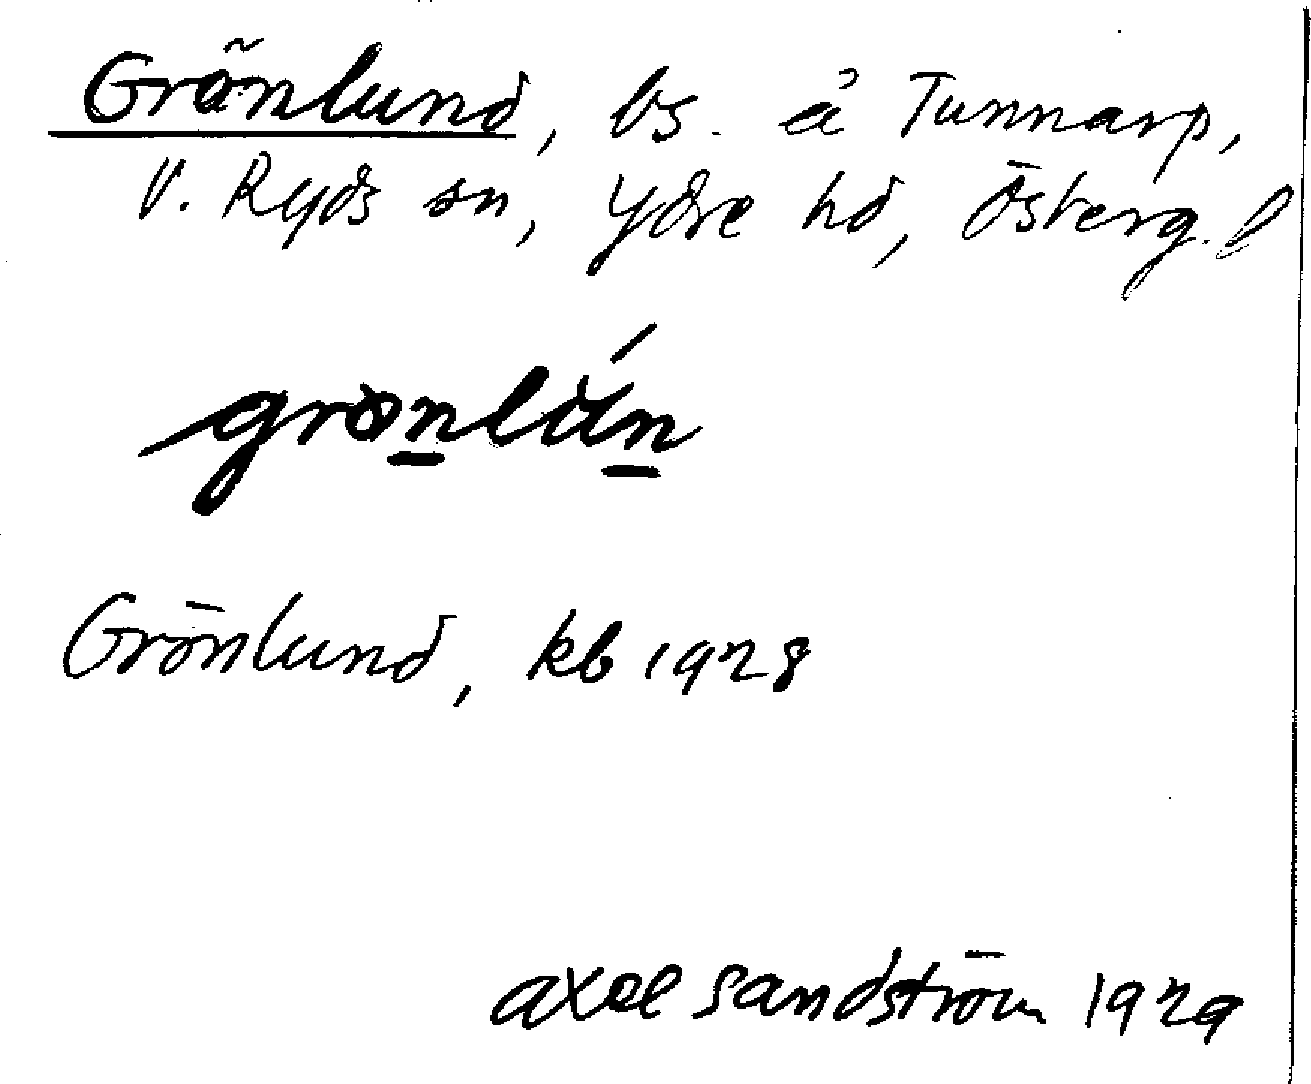 Grönlund, bs. å Tunnarp,
V. Ryds sn, Ydre hd, Österg. l
Grönlund, kb 1928
Axel Sandström 1929